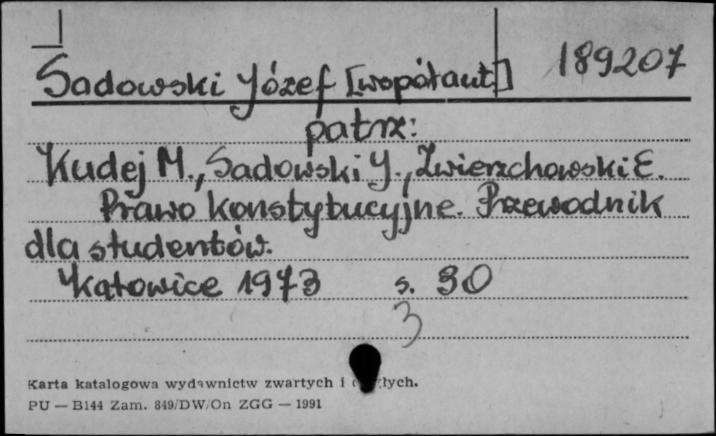 Sadowski Józef [współaut.] 189207
patrz:
Kudej M., Sadowski J., Zwierzchowski E.
Prawo konstytucyjne. Przewodnik
dla studentów.
Katowice 1973 s. 90
3
Karta katalogowa wydawnictw zwartych i
PU — B144 Zam. 849/DW/On ZGG — 1991